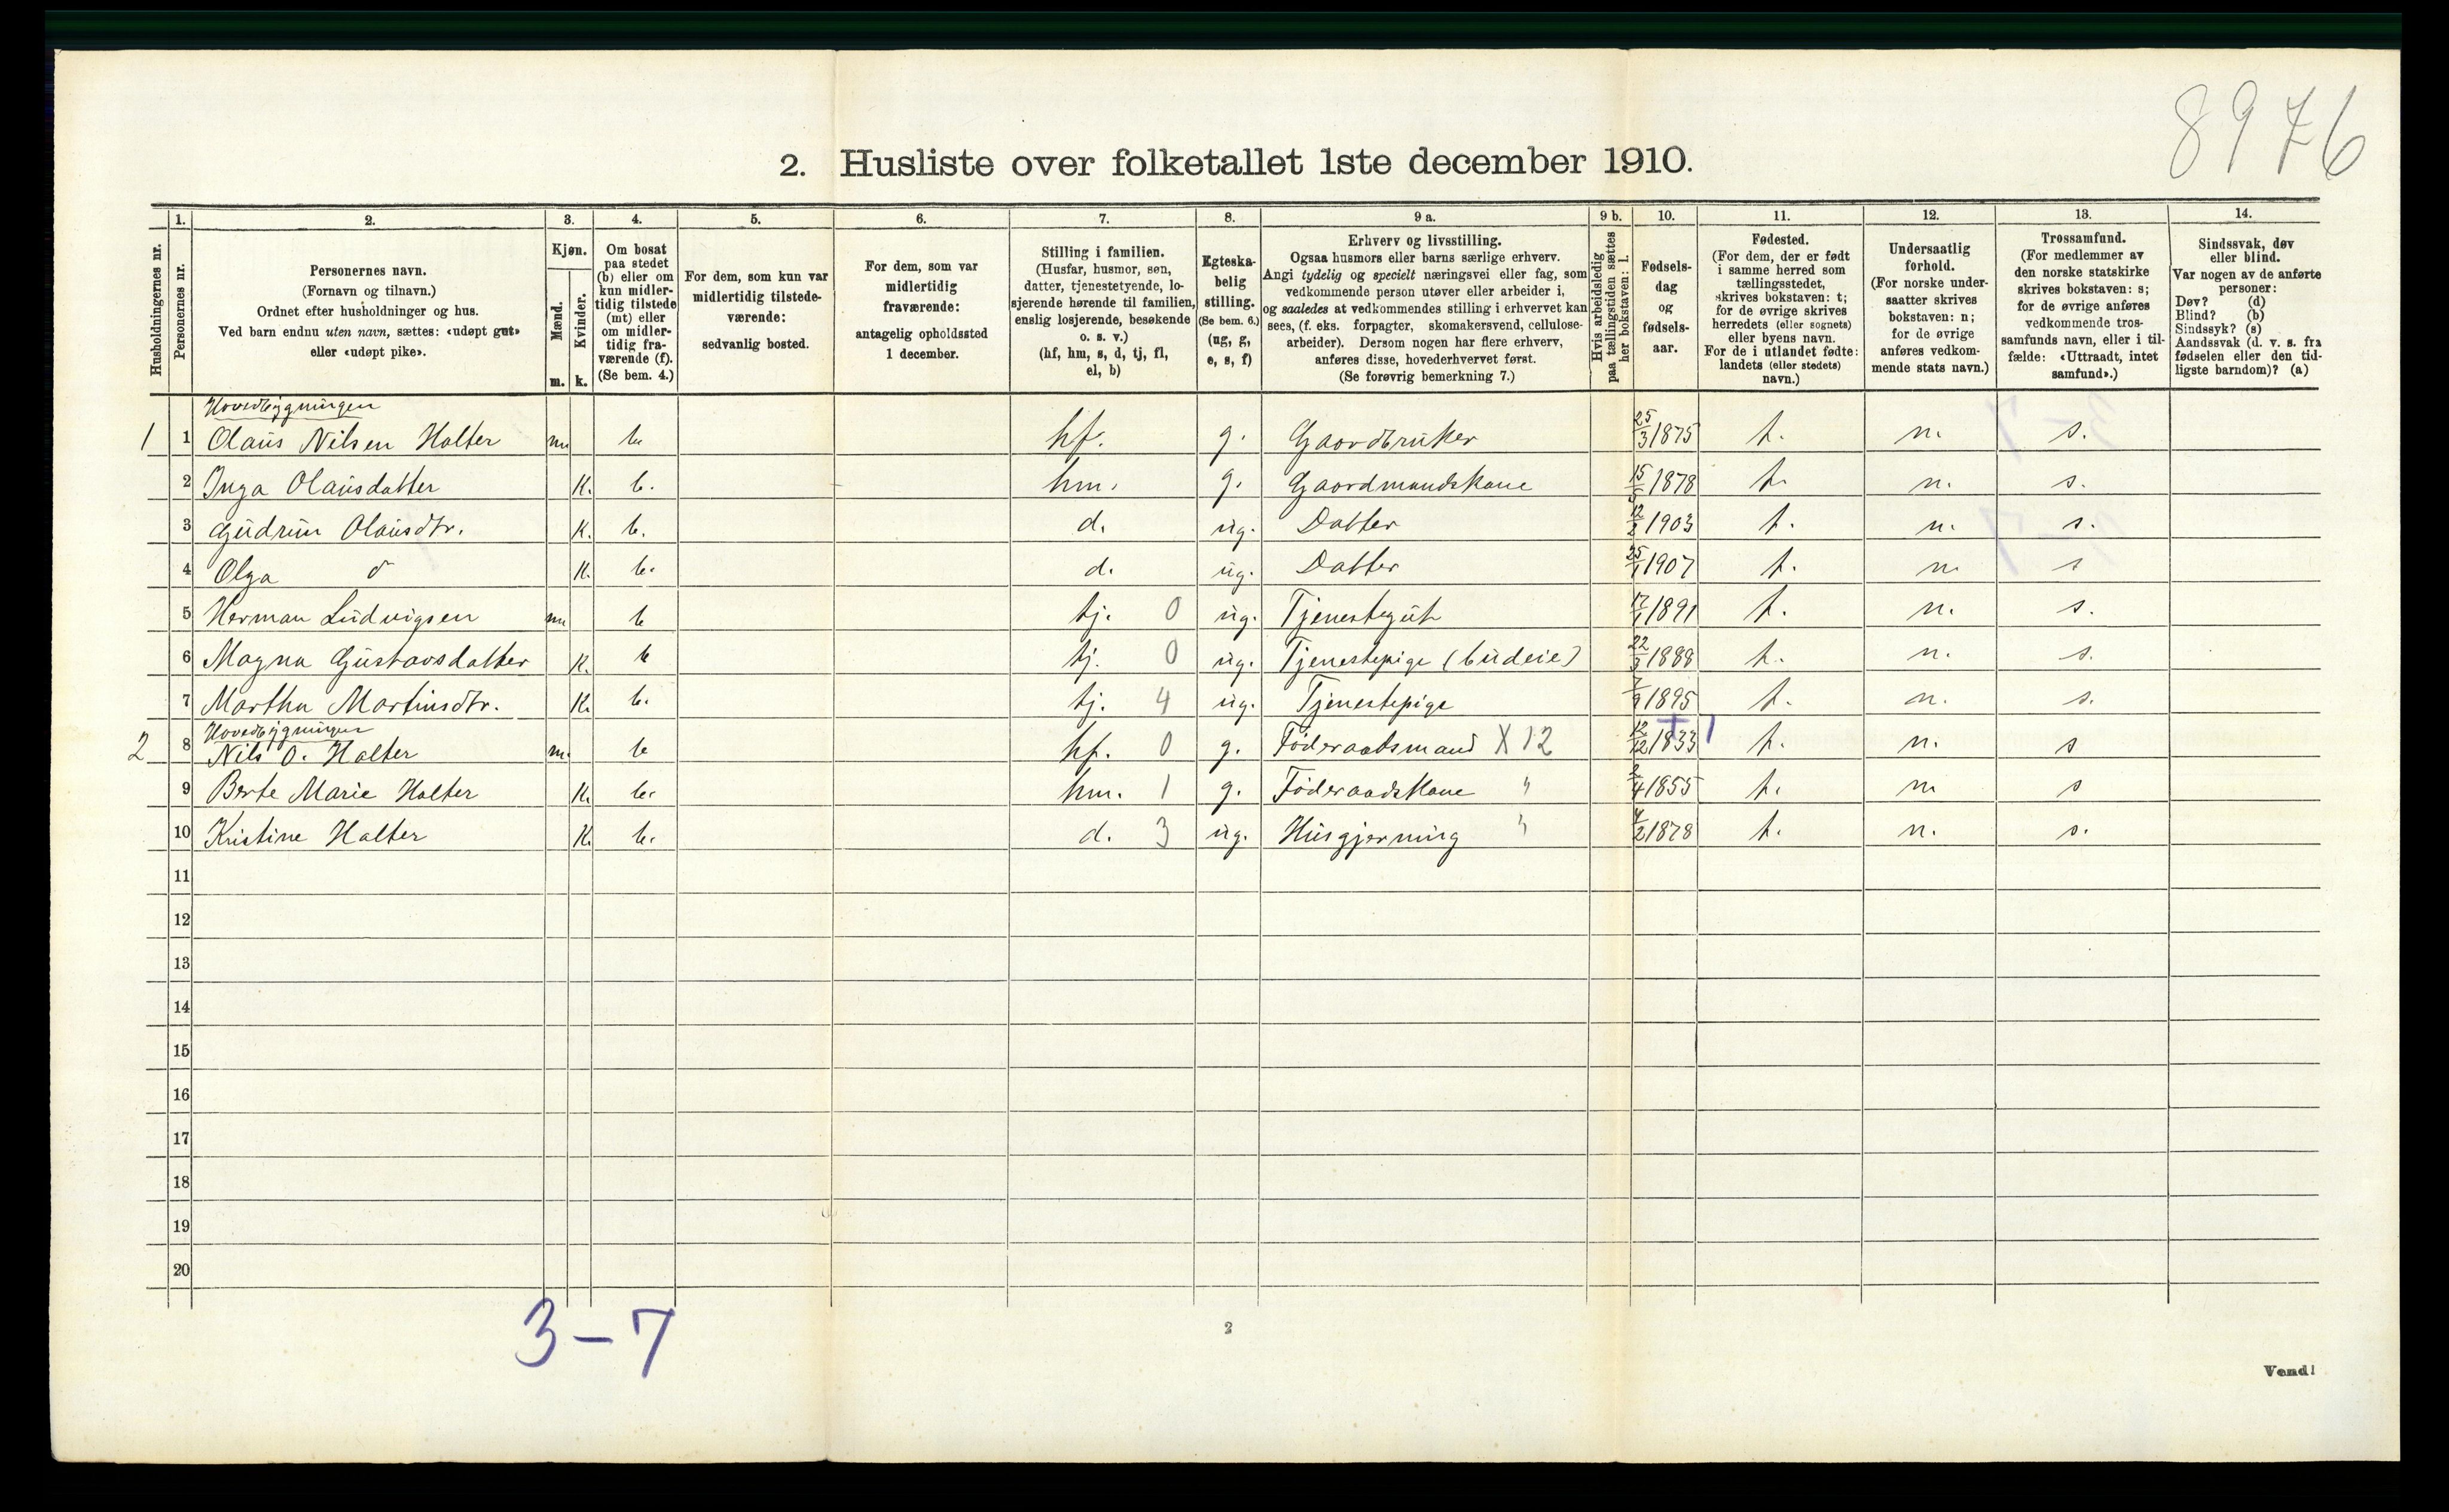 8976
2. Husliste over folketallet 1ste december 1910.
1. 2. 3. 4. 5. 6. 7. 8. 9 a. 9 b. 10. 11. 12. 13. 14.
Husholdningernes nr.
Personernes nr.
Personernes navn.
(Fornavn og tilnavn.)
Ordnet efter husholdninger og hus.
Ved barn endnu uten navn, sættes: «udøpt gut»
eller «udøpt pike».
Kjøn.
Mænd.
Kvinder.
m. k.
Om bosat
paa stedet
(b) eller om
kun midler-
tidig tilstede
(mt) eller
om midler-
tidig fra-
værende (f).
(Se bem. 4.)
For dem, som kun var
midlertidig tilstede-
værende:
sedvanlig bosted.
For dem, som var
midlertidig
fraværende:
antagelig opholdssted
1 december.
Stilling i familien.
(Husfar, husmor, søn,
datter, tjenestetyende, lo-
sjerende hørende til familien,
enslig losjerende, besøkende
o. s. v.)
(hf, hm, s, d, tj, fl,
el, b)
Egteska-
belig
stilling.
(Se bem. 6.)
(ug, g,
e, s, f)
Erhverv og livsstilling.
Ogsaa husmors eller barns særlige erhverv.
Angi tydelig og specielt næringsvei eller fag, som
vedkommende person utøver eller arbeider i,
og saaledes at vedkommendes stilling i erhvervet kan
sees, (f. eks. forpagter, skomakersvend, cellulose-
arbeider). Dersom nogen har flere erhverv,
anføres disse, hovederhvervet først.
(Se forøvrig bemerkning 7.)
Hvis arbeidsledig
paa tællingstiden sættes
her bokstaven: l.
Fødsels-
dag
og
fødsels-
aar.
Fødested.
(For dem, der er født
i samme herred som
tællingsstedet,
skrives bokstaven: t;
for de øvrige skrives
herredets (eller sognets)
eller byens navn.
For de i utlandet fødte:
landets (eller stedets)
navn.)
Undersaatlig
forhold.
(For norske under-
saatter skrives
bokstaven: n;
for de øvrige
anføres vedkom-
mende stats navn.)
Trossamfund.
(For medlemmer av
den norske statskirke
skrives bokstaven: s;
for de øvrige anføres
vedkommende tros-
samfunds navn, eller i til-
fælde: «Uttraadt, intet
samfund».)
Sindssvak, døv
eller blind.
Var nogen av de anførte
personer:
Døv? (d)
Blind? (b)
Sindssyk? (s)
Aandssvak (d. v. s. fra
fødselen eller den tid-
ligste barndom)? (a)
Hovedbygningen
1 1 Olaus Nilsen Holter m b hf. g. Gaardbruker 25/3 1875 t. n. s.
2 Inga Olausdatter k. b. hm. g. Gaardmandskone 15/5 1878 t. n. s.
3 Gudrun Olausdtr. k. b. d. ug. Datter 12/2 1903 t. n. s.
4 Olga do k. b. d. ug. Datter 25/1 1907 t. n. s
5 Herman Ludvigsen m b tj. 0 ug. Tjenestegut 17/1 1891 t. n. s.
6 Magna Gustavsdatter k. b tj. 0 ug. Tjenestepige (budeie) 22/3 1888 t. n. s.
7 Martha Martinsdtr. k. b. tj. 4 ug. Tjenestepige 7/9 1895 t. n. s.
Hovedbygningen
2 8 Nils O. Holter m. b hf. 0 g. Føderaadsmand X 12 12/12 1833 t. n. s
9 Berte Marie Holter k. b. hm. 1 g. Føderaadskone " 2/4 1855 t. n s
10 Kristine Holter k. b. d. 3 ug. Husgjerning " 4/2 1878 t. n. s.
11
12
13
14
15
16
17
18
19
20
3-7
2
Vend!